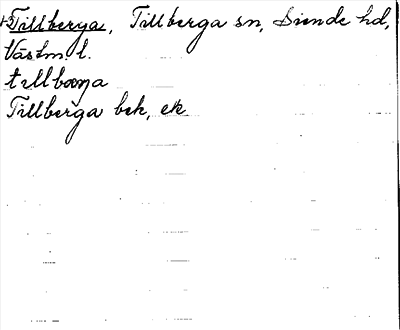 Tillberga, Tillberga sn, Siende hd,
Västm. l.
tillbærja
Tillberga bek, ek